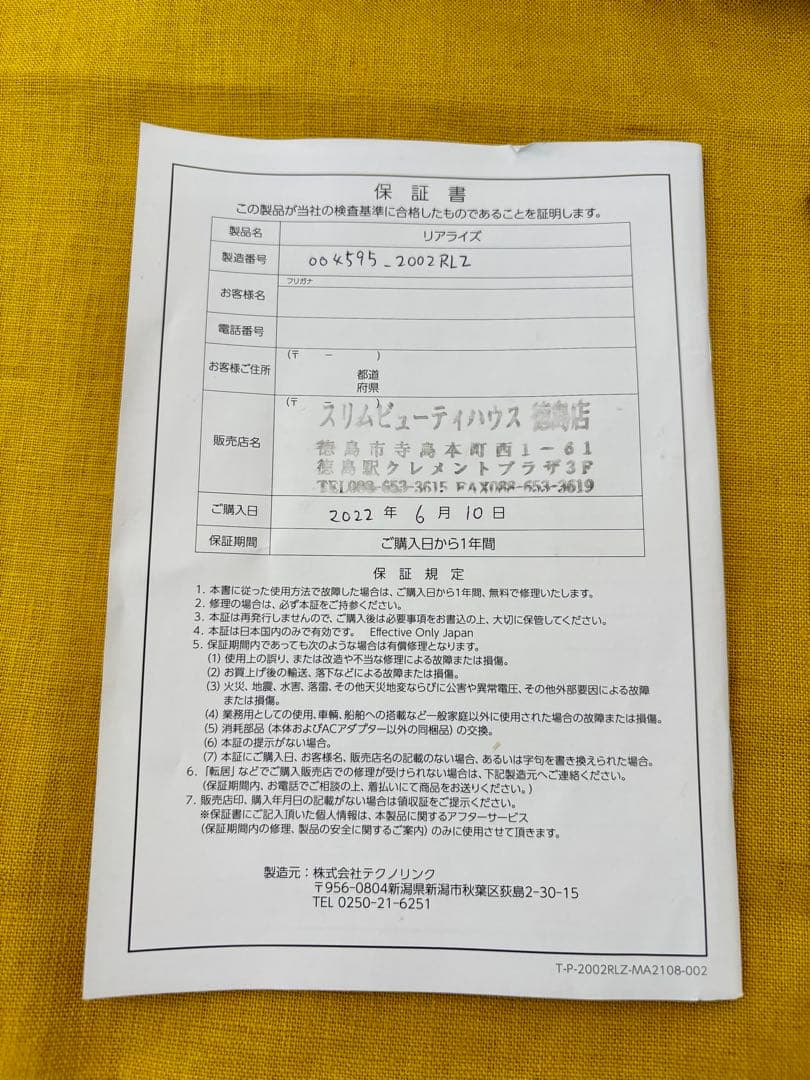 保証書
この製品が当社の検査基準に合格したものであることを証明します。
製品名 リアライズ
製造番号 004595-2002RLZ
フリガナ
お客様名
電話番号
お客様ご住所 (〒 － )
都道
府県
販売店名 (〒 － )
スリムビューティハウス 徳島店
徳島市寺島本町西1-61
徳島駅クレメントプラザ3F
TEL088-653-3615 FAX088-653-3619
ご購入日 2022 年 6 月 10 日
保証期間 ご購入日から1年間
保証規定
1. 本書に従った使用方法で故障した場合は、ご購入日から1年間、無料で修理いたします。
2. 修理の場合は、必ず本証をご持参ください。
3. 本証は再発行しませんので、ご購入後は必要事項をお書込の上、大切に保管してください。
4. 本証は日本国内のみで有効です。 Effective Only Japan
5. 保証期間内であっても次のような場合は有償修理となります。
(1) 使用上の誤り、または改造や不当な修理による故障または損傷。
(2) お買上げ後の輸送、落下などによる故障または損傷。
(3) 火災、地震、水害、落雷、その他天災地変ならびに公害や異常電圧、その他外部要因による故障
または損傷。
(4) 業務用としての使用、車輌、船舶への搭載など一般家庭以外に使用された場合の故障または損傷。
(5) 消耗部品（本体およびACアダプター以外の同梱品）の交換。
(6) 本証の提示がない場合。
(7) 本証にご購入日、お客様名、販売店名の記載のない場合、あるいは字句を書き換えられた場合。
6. 「転居」などでご購入販売店での修理が受けられない場合は、下記製造元へご連絡ください。
（保証期間内、お電話でご相談の上、着払いにて商品をお送りください。）
7. 販売店印、購入年月日の記載がない場合は領収証をご提示ください。
※保証書にご記入頂いた個人情報は、本製品に関するアフターサービス
（保証期間内の修理、製品の安全に関するご案内）のみに使用させて頂きます。
製造元：株式会社テクノリンク
〒956-0804新潟県新潟市秋葉区荻島2-30-15
TEL 0250-21-6251
T-P-2002RLZ-MA2108-002